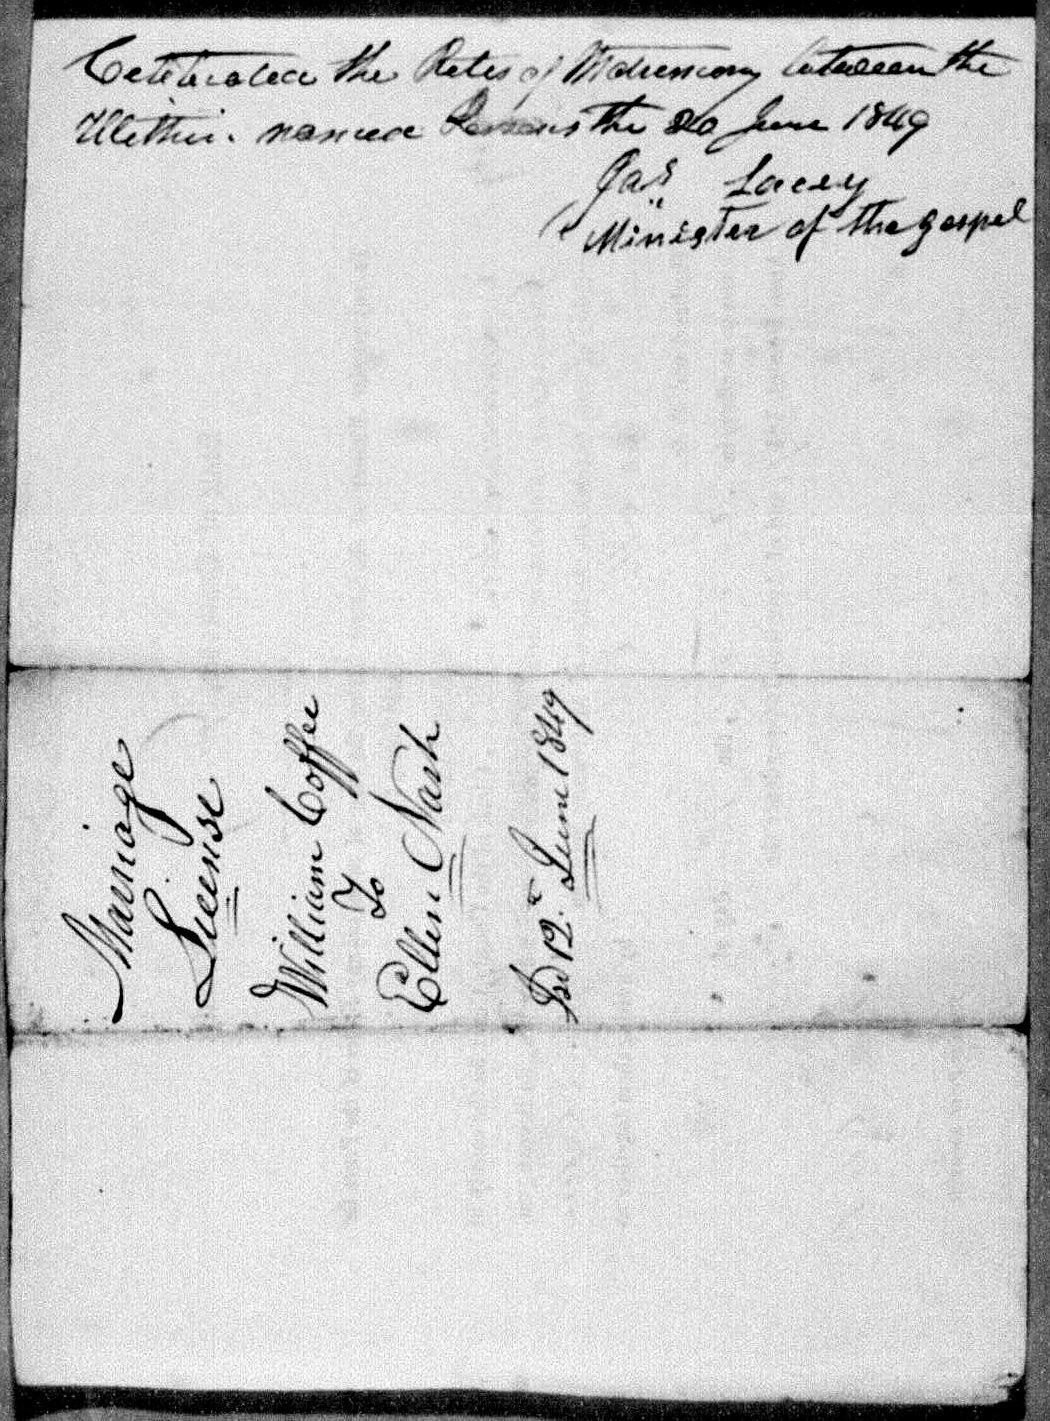 Celebrated the Rites of Matrimony between the
Within named Persons the 20 June 1849
Jas Lacey
Minister of the gospel
Marriage
License
William Coffee
To
Ellen Nash
Isd 12 June 1849